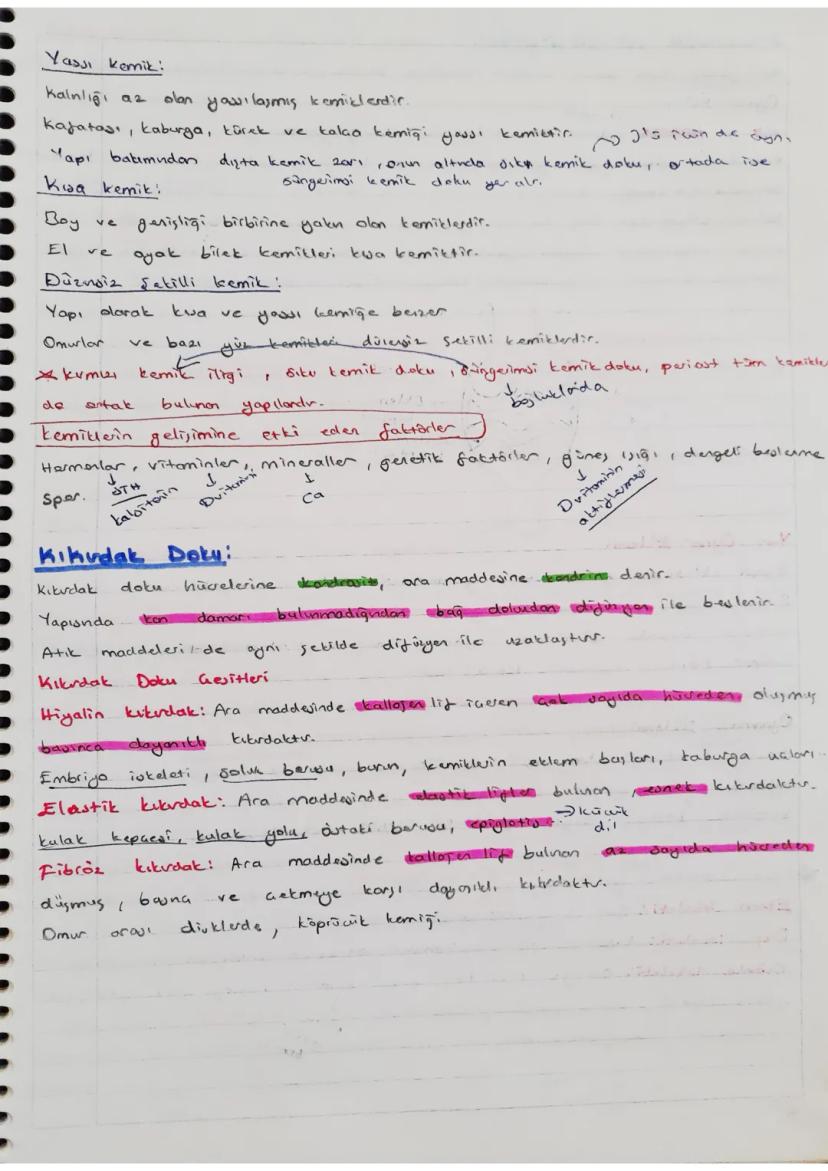 Yassı kemik:
Kalınlığı az olan yassılaşmış kemiklerdir.
Kafatası, kaburga, kürek ve kalça kemiği yassı kemiktir. → 3'ü için de aynı.
Yapı bakımından dışta kemik zarı, onun altında sıkı kemik doku, ortada ise
süngerimsi kemik doku yer alır.
Kısa kemik:
Boy ve genişliği birbirine yakın olan kemiklerdir.
El ve ayak bilek kemikleri kısa kemiktir.
Düzensiz şekilli kemik:
Yapı olarak kısa ve yassı kemiğe benzer
Omurlar ve bazı yüz kemikleri düzensiz şekilli kemiklerdir.
* kırmızı kemik iliği, sıkı kemik doku, süngerimsi kemik doku, periost tüm kemikler
↓ boşluklarında
de ortak bulunan yapılardır.
Kemiklerin gelişimine etki eden faktörler
Hormonlar, vitaminler, mineraller, genetik faktörler, güneş ışığı, dengeli beslenme
Spor. ↓ STH kalsitonin ↓ D vitamini ↓ Ca ↓ D vitaminin aktifleşmesi
Kıkırdak Doku:
Kıkırdak doku hücrelerine kondrosit, ara maddesine kondrin denir.
Yapısında kan damarı bulunmadığından bağ dokudan difüzyon ile beslenir.
Atık maddeleri de aynı şekilde difüzyon ile uzaklaştırır.
Kıkırdak Doku Çeşitleri
Hiyalin kıkırdak: Ara maddesinde kollajen lif içeren çok sayıda hücreden oluşmuş
basınca dayanıklı kıkırdaktır.
Embriyo iskeleti, soluk borusu, burun, kemiklerin eklem başları, kaburga uçları
Elastik kıkırdak: Ara maddesinde elastik lifler bulunan, esnek kıkırdaktır.
kulak kepçesi, kulak yolu, östaki borusu, epiglotis → küçük
dil
Fibröz kıkırdak: Ara maddesinde kollajen lif bulunan az sayıda hücreden
düşmuş, basına ve çekmeye karşı dayanıklı kıkırdaktır.
Omur arası disklerde, köprücük kemiği.